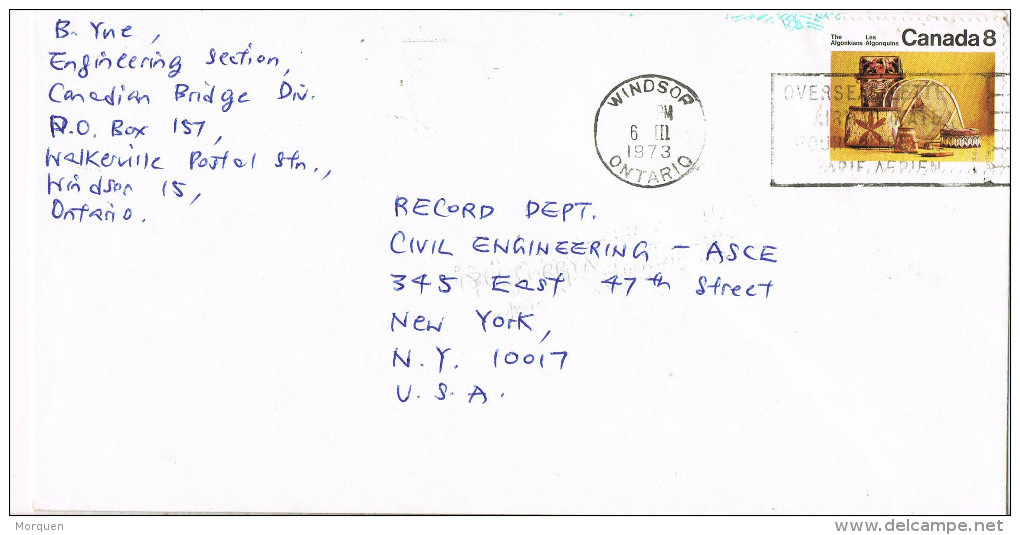 B. Yue,
Engineering Section,
Canadian Bridge Div.
P.O. Box 157,
Walkerville Postal Stn.,
Windsor 15,
Ontario.
WINDSOR
PM
6 III
1973
ONTARIO
The Algonkians
Les Algonquins
Canada 8
OVERSEAS
TARIF AERIEN
RECORD DEPT.
CIVIL ENGINEERING - ASCE
345 East 47th Street
New York,
N.Y. 10017
U.S.A.
Morquen
www.delcampe.net